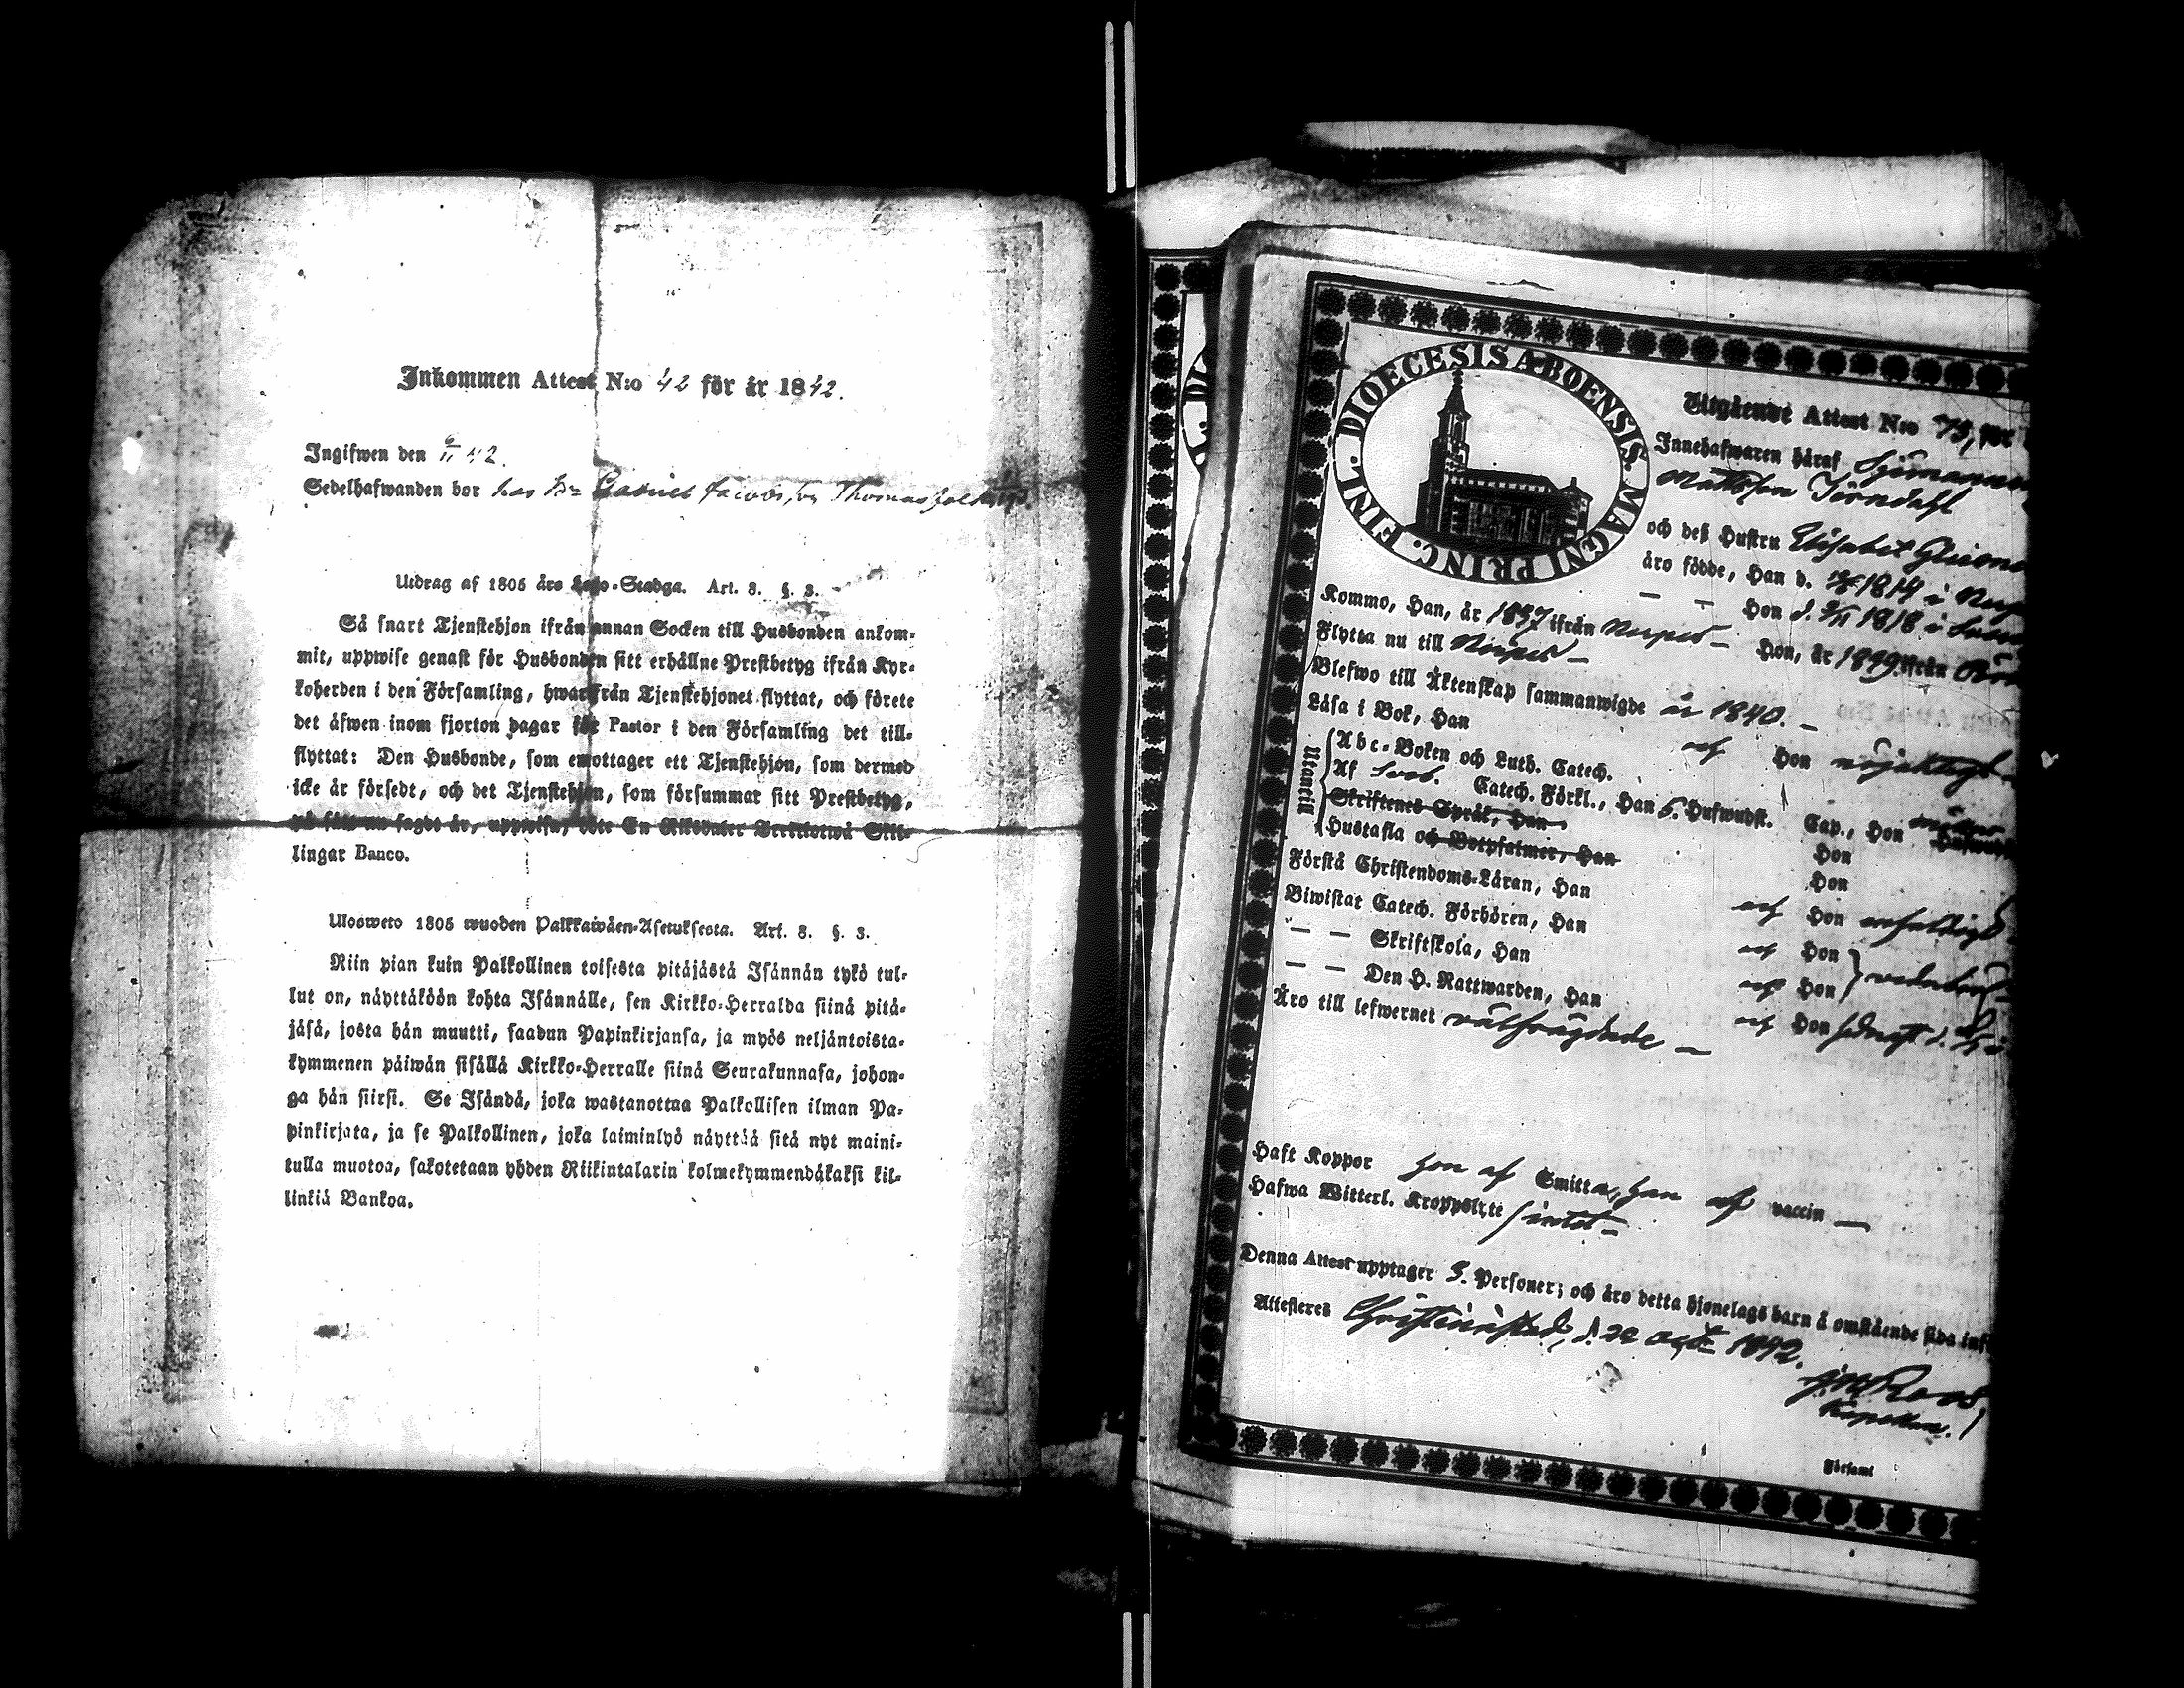 Inkommen Attest N:o 42 för år 1842.
Ingifwen den 6/11 42.
Sedelhafwanden bor hos Gabriel Jacobsson Thomasfolk
Utdrag af 1805 års Lego-Stadga. Art. 8. §. 3.
Så snart Tjenstehjon ifrån annan Socken till Husbonden ankom-
mit, uppwise genast för Husbonden sitt erhållne Prestbetyg ifrån Kyr-
koherden i den Församling, hwarifrån Tjenstehjonet flyttat, och förete
det äfwen inom fjorton dagar för Pastor i den Församling det till-
flyttat: Den Husbonde, som emottager ett Tjenstehjon, som dermed
icke är försedt, och det Tjenstehjon, som försummar sitt Prestbetyg,
på sätt nu sagdt är, uppwisa, böte En Riksdaler Trettiotwå Skil-
lingar Banco.
Ulosweto 1805 wuoden Palkkawäen-Asetuksesta. Art. 8. §. 3.
Niin pian kuin Palkollinen toisesta pitäjästä Isännän tykö tul-
lut on, näyttäköön kohta Isännälle, sen Kirkko-Herralda siinä pitä-
jäsä, josta hän muutti, saadun Papinkirjansa, ja myös neljäntoista-
kymmenen päiwän sisällä Kirkko-Herralle siinä Seurakunnasa, johon-
ga hän siirsi. Se Isändä, joka wastanottaa Palkollisen ilman Pa-
pinkirjata, ja se Palkollinen, joka laiminlyö näyttää sitä nyt maini-
tulla muotoa, sakotetaan yhden Riikintalarin kolmekymmendäkaksi kil-
linkiä Bankoa.
DIOECESIS ABOENSIS. MAGNI PRINC. FINL.
Utgående Attest N:o 75, för
Innehafwaren häraf Sjömannen
Mattsson Törndahl
och deß Hustru Elisabet
äro födde, Han d. 1814 i
— — Hon d. 9/11 1818 i
Kommo, Han, år 1837 ifrån Nerpes — Hon, år 1839 ifrån
Flytta nu till Nerpes —
Blefwo till Äktenskap sammanwigde år 1840. —
Läsa i Bok, Han och Hon nöjaktigt
Utantill
Abc-Boken och Luth. Catech.
Af Sveb. Catech. Förkl., Han 5. Hufwudst. Cap., Hon
Skriftenes Språk, Han Hon
Hustafla och Botpsalmer, Han Hon
Förstå Christendoms-Läran, Han och Hon enfaldigt
Biwistat Catech. Förhören, Han och Hon
— — Skriftskola, Han och Hon
— — Den H. Nattwarden, Han och Hon sednast d.
Äro till lefwernet välfrägdade —
Haft Koppor hon af Smitta, han af vaccin —
Hafwa Witterl. Kroppslyte intet —
Denna Attest upptager 3. Personer; och äro detta hjonelags barn å omstående sida
Attesteres Christinestad, d. 22 oct. 1842.
Roos
Kapellan.
Församl